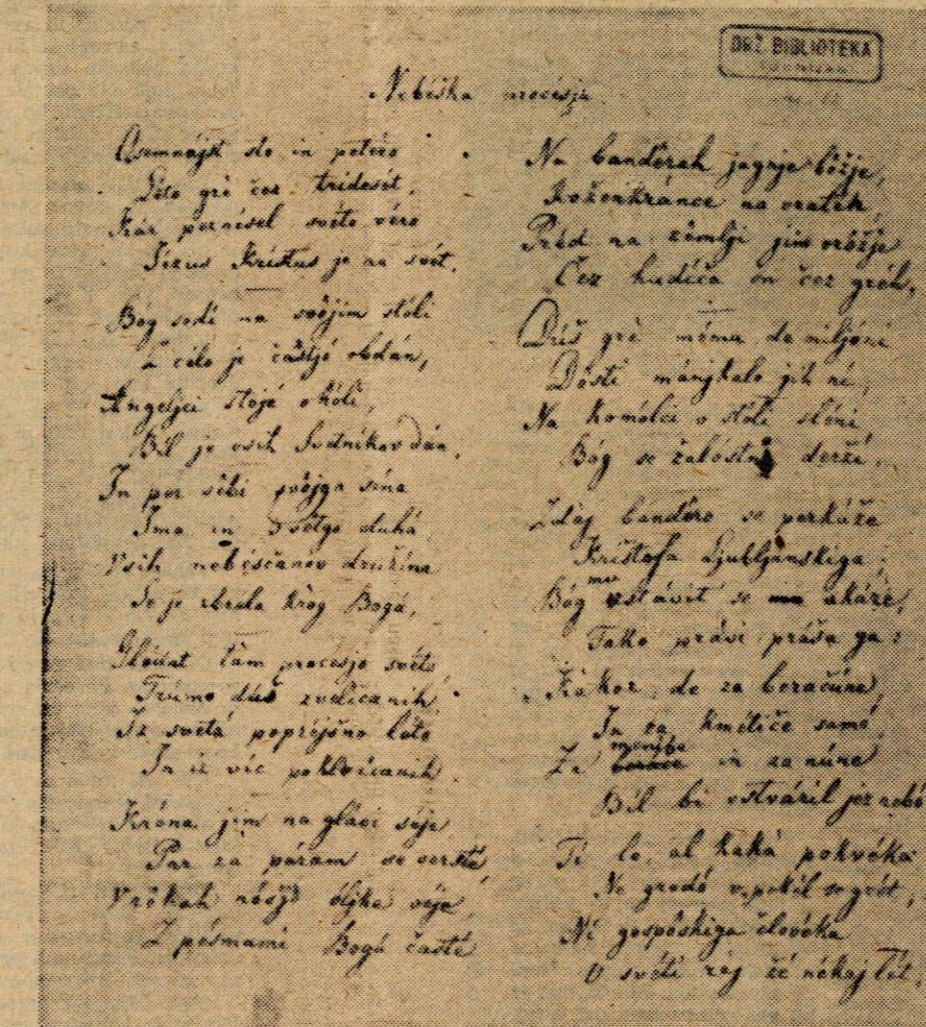 DRŽ. BIBLIOTEKA
Nebéška procésja
Osemnájst sto in petéro
Léto gré čez tridesét,
Kár pernésel svéto véro
Jezus Kristus je na svét.
Bóg sedí na svójim stóli
Z céló je častjó obdán,
Angeljci stojé okóli,
Bil je vsih Svétnikov dán.
In per sébi svójga sína
Ima in Svétga duhá
Vsih nebéščanov družína
Se je zbrála króg Bogá,
Glédat tám procésjo svéto
Trúmo dúš zveličanih
Iz svetá popréjšno léto
In iz víc poklícanih.
Króna jim na glávi sije
Par za páram se versté,
V rókah nósjo óljke véje
Z pésmami Bogá časté
Na bandérah jágrje bóžje,
Roženkránce na vratéh
Préd na zémlji jim oróžje
Čez hudíča in čez gréh.
Dúš gré mému do miljóni
Dósti mánjkalo jih ni,
Na komólci v stóli slóni
Bóg se žalóstn derží.
Zdáj bandéro se perkáže
Krištofa Ljubljánskiga;
Bóg mu vstávit se ukáže,
Tako právi práša ga:
Kákor, de za beračúne,
In za kmétiče samó
Za meníhe in za núne
Bil bi vstváril jez nebó
Ti le, al kaká pokvéka
Ne gredó v pekél se grét,
Ni gospóskiga človéka
V svéti ráj že nékaj lét.